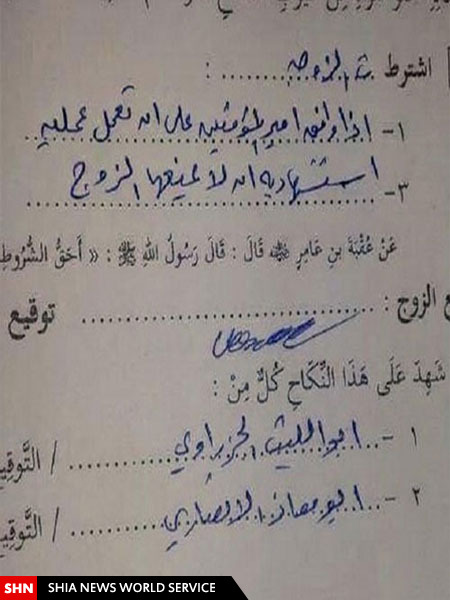 اشترطت الزوجة :
١- اذا وافق امير المؤمنين على ان تعمل عملية
٣- استشهادية ان لا يمنعها الزوج
عَنْ عُقْبَةَ بنِ عَامِرٍ ﷺ قَالَ : قَالَ رَسُولُ اللهِ ﷺ : « أَحَقُّ الشُّرُوطِ
ع الزوج : توقيع
شَهِدَ عَلَى هَذَا النِّكَاحِ كُلٌّ مِنْ :
١ - ابو الليث الجزراوي / التَّوقِيـ
٢ - ابو معاذ الانصاري / التَّوقِيـ
SHN SHIA NEWS WORLD SERVICE